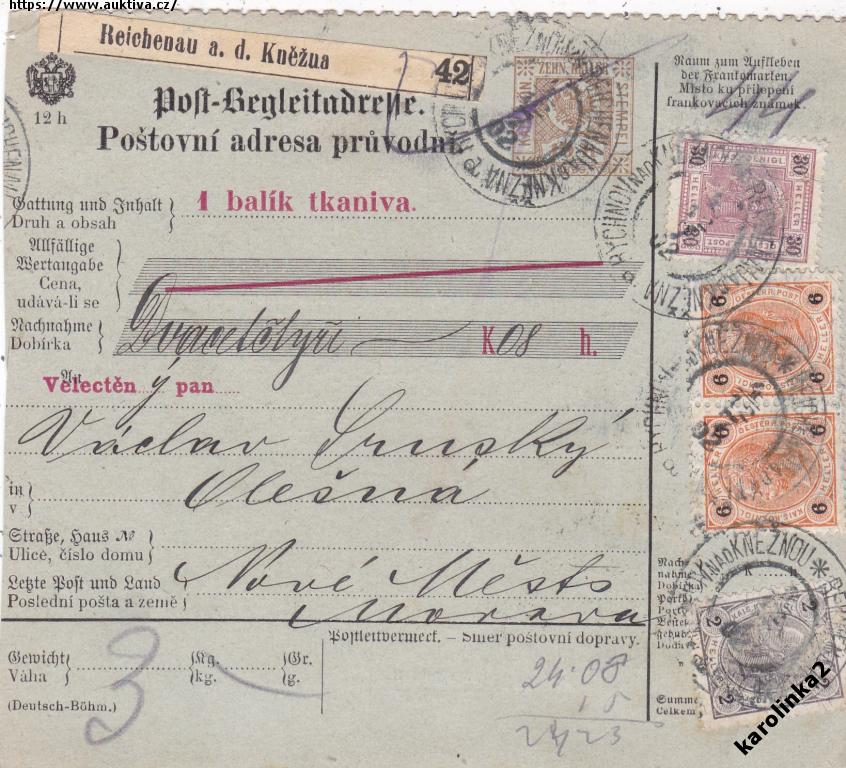 https://www.auktiva.cz/
Reichenau a. d. Kněžna
42
12 h
Post-Begleitadresse.
Poštovní adresa průvodní.
ZEHN HELLER
STEMPEL
Raum zum Aufkleben
der Frankomarken.
Místo ku přilepení
frankovacích známek.
44
Gattung und Inhalt
Druh a obsah
1 balík tkaniva.
Allfällige
Wertangabe
Cena,
udává-li se
Nachnahme
Dobírka
Dvacetčtyři K 08 h.
An
Velectěný pan
Václav
Olešná
in
v
Straße, Haus №
Ulice, číslo domu
Letzte Post und Land
Poslední pošta a země
Nové Město
Morava
Postleitvermerk. – Směr poštovní dopravy.
Gewicht
Váha
Kg.
kg.
Gr.
g.
(Deutsch-Böhm.)
3
24·08
15
24/23
Nach-
nahme
Dobírka
Porto
Summe
Celkem
30 HELLER 30
6 HELLER 6
6 HELLER 6
2 2
RYCHNOV NAD KNĚŽNOU
karolinka2